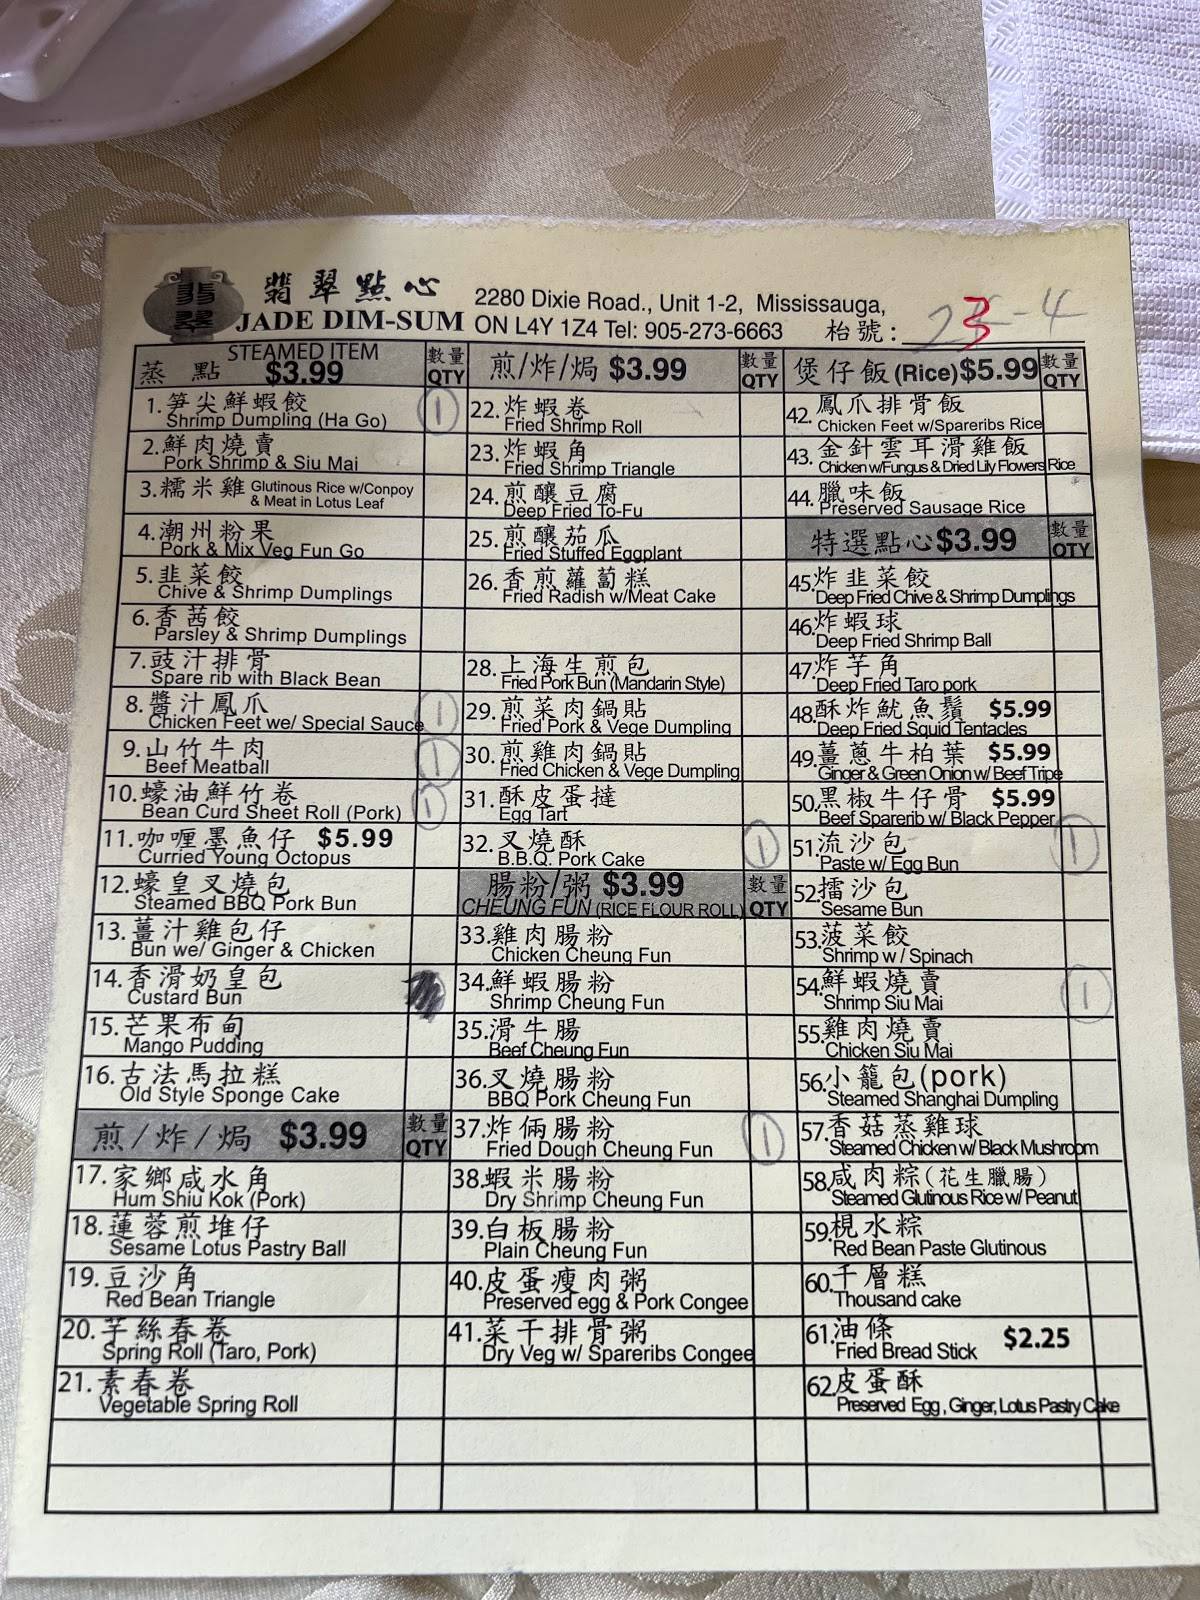 翡翠
翡翠點心
JADE DIM-SUM
2280 Dixie Road., Unit 1-2, Mississauga,
ON L4Y 1Z4 Tel: 905-273-6663
枱號:
3 - 4
蒸點 STEAMED ITEM $3.99 數量 QTY
1. 笋尖鮮蝦餃 ①
Shrimp Dumpling (Ha Go)
2. 鮮肉燒賣
Pork Shrimp & Siu Mai
3. 糯米雞 Glutinous Rice w/Conpoy
& Meat in Lotus Leaf
4. 潮州粉果
Pork & Mix Veg Fun Go
5. 韭菜餃
Chive & Shrimp Dumplings
6. 香茜餃
Parsley & Shrimp Dumplings
7. 豉汁排骨
Spare rib with Black Bean
8. 醬汁鳳爪 ①
Chicken Feet we/ Special Sauce
9. 山竹牛肉 ①
Beef Meatball
10. 蠔油鮮竹卷 ①
Bean Curd Sheet Roll (Pork)
11. 咖喱墨魚仔 $5.99
Curried Young Octopus
12. 蠔皇叉燒包
Steamed BBQ Pork Bun
13. 薑汁雞包仔
Bun we/ Ginger & Chicken
14. 香滑奶皇包
Custard Bun
15. 芒果布甸
Mango Pudding
16. 古法馬拉糕
Old Style Sponge Cake
煎/炸/焗 $3.99 數量 QTY
17. 家鄉咸水角
Hum Shiu Kok (Pork)
18. 蓮蓉煎堆仔
Sesame Lotus Pastry Ball
19. 豆沙角
Red Bean Triangle
20. 芋絲春卷
Spring Roll (Taro, Pork)
21. 素春卷
Vegetable Spring Roll
煎/炸/焗 $3.99 數量 QTY
22. 炸蝦卷
Fried Shrimp Roll
23. 炸蝦角
Fried Shrimp Triangle
24. 煎釀豆腐
Deep Fried To-Fu
25. 煎釀茄瓜
Fried Stuffed Eggplant
26. 香煎蘿蔔糕
Fried Radish w/Meat Cake
28. 上海生煎包
Fried Pork Bun (Mandarin Style)
29. 煎菜肉鍋貼
Fried Pork & Vege Dumpling
30. 煎雞肉鍋貼
Fried Chicken & Vege Dumpling
31. 酥皮蛋撻
Egg Tart
32. 叉燒酥 ①
B.B.Q. Pork Cake
腸粉/粥 $3.99 數量
CHEUNG FUN (RICE FLOUR ROLL) QTY
33. 雞肉腸粉
Chicken Cheung Fun
34. 鮮蝦腸粉
Shrimp Cheung Fun
35. 滑牛腸
Beef Cheung Fun
36. 叉燒腸粉
BBQ Pork Cheung Fun
37. 炸倆腸粉 ①
Fried Dough Cheung Fun
38. 蝦米腸粉
Dry Shrimp Cheung Fun
39. 白板腸粉
Plain Cheung Fun
40. 皮蛋瘦肉粥
Preserved egg & Pork Congee
41. 菜干排骨粥
Dry Veg w/ Spareribs Congee
煲仔飯 (Rice) $5.99 數量 QTY
42. 鳳爪排骨飯
Chicken Feet w/Spareribs Rice
43. 金針雲耳滑雞飯
Chicken w/Fungus & Dried Lily Flowers Rice
44. 臘味飯
Preserved Sausage Rice
特選點心 $3.99 數量 QTY
45. 炸韭菜餃
Deep Fried Chive & Shrimp Dumplings
46. 炸蝦球
Deep Fried Shrimp Ball
47. 炸芋角
Deep Fried Taro pork
48. 酥炸魷魚鬚 $5.99
Deep Fried Squid Tentacles
49. 薑蔥牛柏葉 $5.99
Ginger & Green Onion w/ Beef Tripe
50. 黑椒牛仔骨 $5.99
Beef Sparerib w/ Black Pepper
51. 流沙包 ①
Paste w/ Egg Bun
52. 擂沙包
Sesame Bun
53. 菠菜餃
Shrimp w / Spinach
54. 鮮蝦燒賣 ①
Shrimp Siu Mai
55. 雞肉燒賣
Chicken Siu Mai
56. 小籠包(pork)
Steamed Shanghai Dumpling
57. 香菇蒸雞球
Steamed Chicken w/ Black Mushroom
58. 咸肉粽(花生臘腸)
Steamed Glutinous Rice w/ Peanut
59. 梘水粽
Red Bean Paste Glutinous
60. 千層糕
Thousand cake
61. 油條 $2.25
Fried Bread Stick
62. 皮蛋酥
Preserved Egg, Ginger, Lotus Pastry Cake